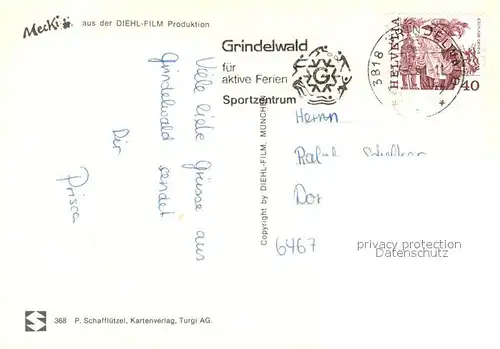 Mecki aus der DIEHL-FILM Produktion
Grindelwald
für
aktive Ferien
Sportzentrum
G
3818 GRINDELWALD
HELVETIA
40
Viele liebe Grüsse aus
Grindelwald sendet
Dir
Prisca
Copyright by DIEHL-FILM, MÜNCHEN
Herrn
Ralph
6467
privacy protection
Datenschutz
AnsichtskartenVersand.com
368 P. Schafflützel, Kartenverlag, Turgi AG.